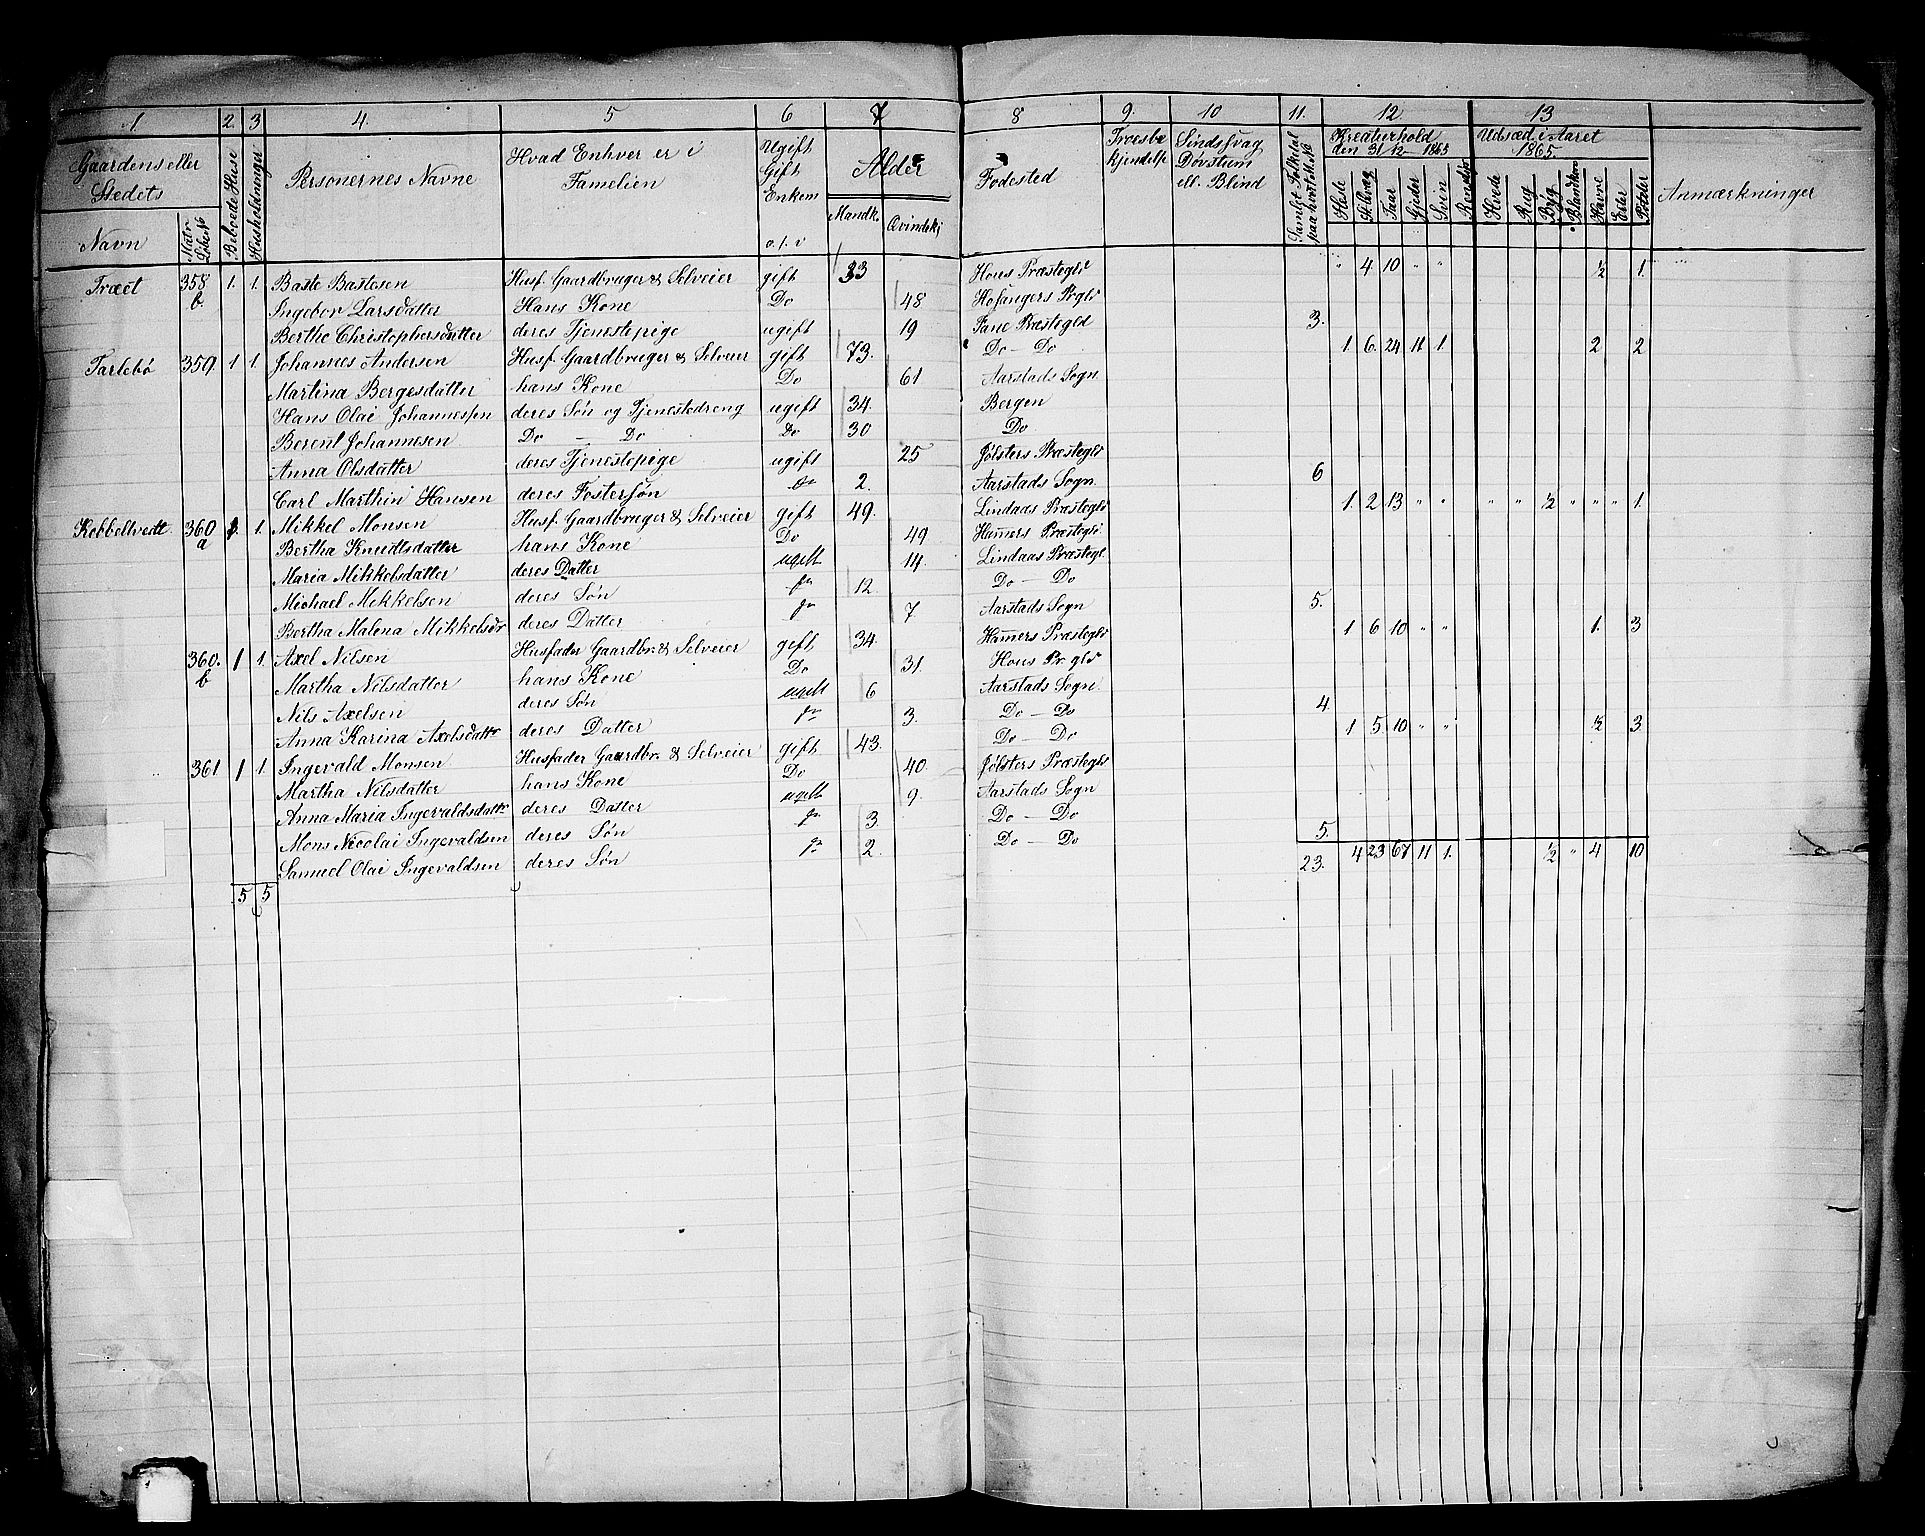 1. 2. 3 4. 5 6 7 8 9. 10 11. 12 13
Gaardens eller Stedets Navn
Matr. Löbe No
Beboede Huse
Husholdninger
Personernes Navne
Hvad Enhver er i Familien
Ugift Gift Enkem o.s.v
Alder
Mandk. Qvindekj
Födested
Troesbe kjendelse
Sindssvag Dövstum ell. Blind
Samlet Folketal paa hvert M. No
Kreaturhold den 31/12 1865
Heste St. Qvæg Faar Gjeder Svin Rensdyr
Udsæd i Aaret 1865.
Hvede Rug Byg Blandkorn Havre Erter Poteter
Anmærkninger
Træet 358 b. 1. 1. Baste Bastesen Husf. Gaardbruger & Selveier gift 33 Hous Præstegld " 4 10 " " ½ 1.
Ingebor Larsdatter Hans Kone Do 48 Hosangers Prgld
Berthe Christophersdatter deres Tjenestepige ugift 19 Fane Præstegld 3.
Tarlebö 359. 1 1. Johannes Andersen Husf. Gaardbruger & Selveier gift 73. Do — Do 1 6. 24 11 1. 2 2
Martina Bergesdatter hans Kone Do 61 Aarstads Sogn.
Hans Olai Johannessen deres Sön og Tjenestedreng ugift 34. Bergen
Berent Johannesen Do — Do Do 30 Do
Anna Olsdatter deres Tjenestepige ugift 25 Jölsters Præstegld
Carl Marthin Hansen deres Fostersön 2. Aarstads Sogn. 6
Kobbeltvedt 360 a 1. 1. Mikkel Monsen Husf. Gaardbruger & Selveier gift 49. Lindaas Præstegld 1. 2 13 " " " " ½ " " " 1.
Bertha Knudtsdatter hans Kone Do 49 Hamers Præstegld
Maria Mikkelsdatter deres Datter ugift 14. Lindaas Præstegl.
Michael Mikkelsen deres Sön 12 Do — Do
Bertha Malena Mikkelsdr deres Datter 7 Aarstads Sogn 5.
360. b 1 1. Axel Nilsen Husfader Gaardbr. & Selveier gift 34. Hamers Præstegld 1 6 10 " " 1. 3
Martha Nilsdatter hans Kone Do 31. Hous Pr. gld
Nils Axelsen deres Sön ugift 6 Aarstads Sogn.
Anna Karina Axelsdattr deres Datter 3. Do — Do 4
361 1 1. Ingevald Monsen Husfader Gaardbr. & Selveier gift 43. Do — Do 1 5 10 " " ½ 3.
Martha Nilsdatter hans Kone Do 40. Jölsters Præstegld
Anna Maria Ingevaldsdattr deres Datter ugift 9. Aarstads Sogn
Mons Nicolai Ingevaldsen deres Sön 3. Do — Do
Samuel Olai Ingevaldsen deres Sön 2. Do — Do 5.
5 5 23. 4 23 67 11 1. ½ " 4 10